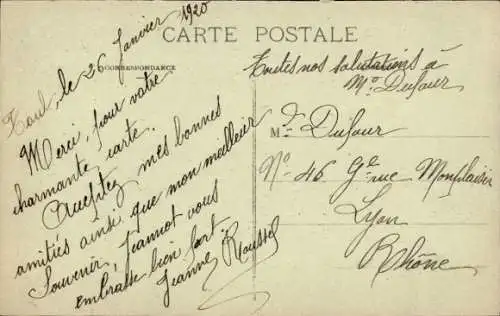 CARTE POSTALE
CORRESPONDANCE
Toul, le 26 Janvier 1920
Merci, pour votre
charmante carte.
mes bonnes
amitiés ainsi que mon meilleur
Souvenir, Jeannot vous
embrasse bien fort.
Jeanne Roussel
Toutes nos salutations à
Mr Dufour
Mr Dufour
No 46 Gde rue Monplaisir
Lyon
Rhône
CARTE POSTALE